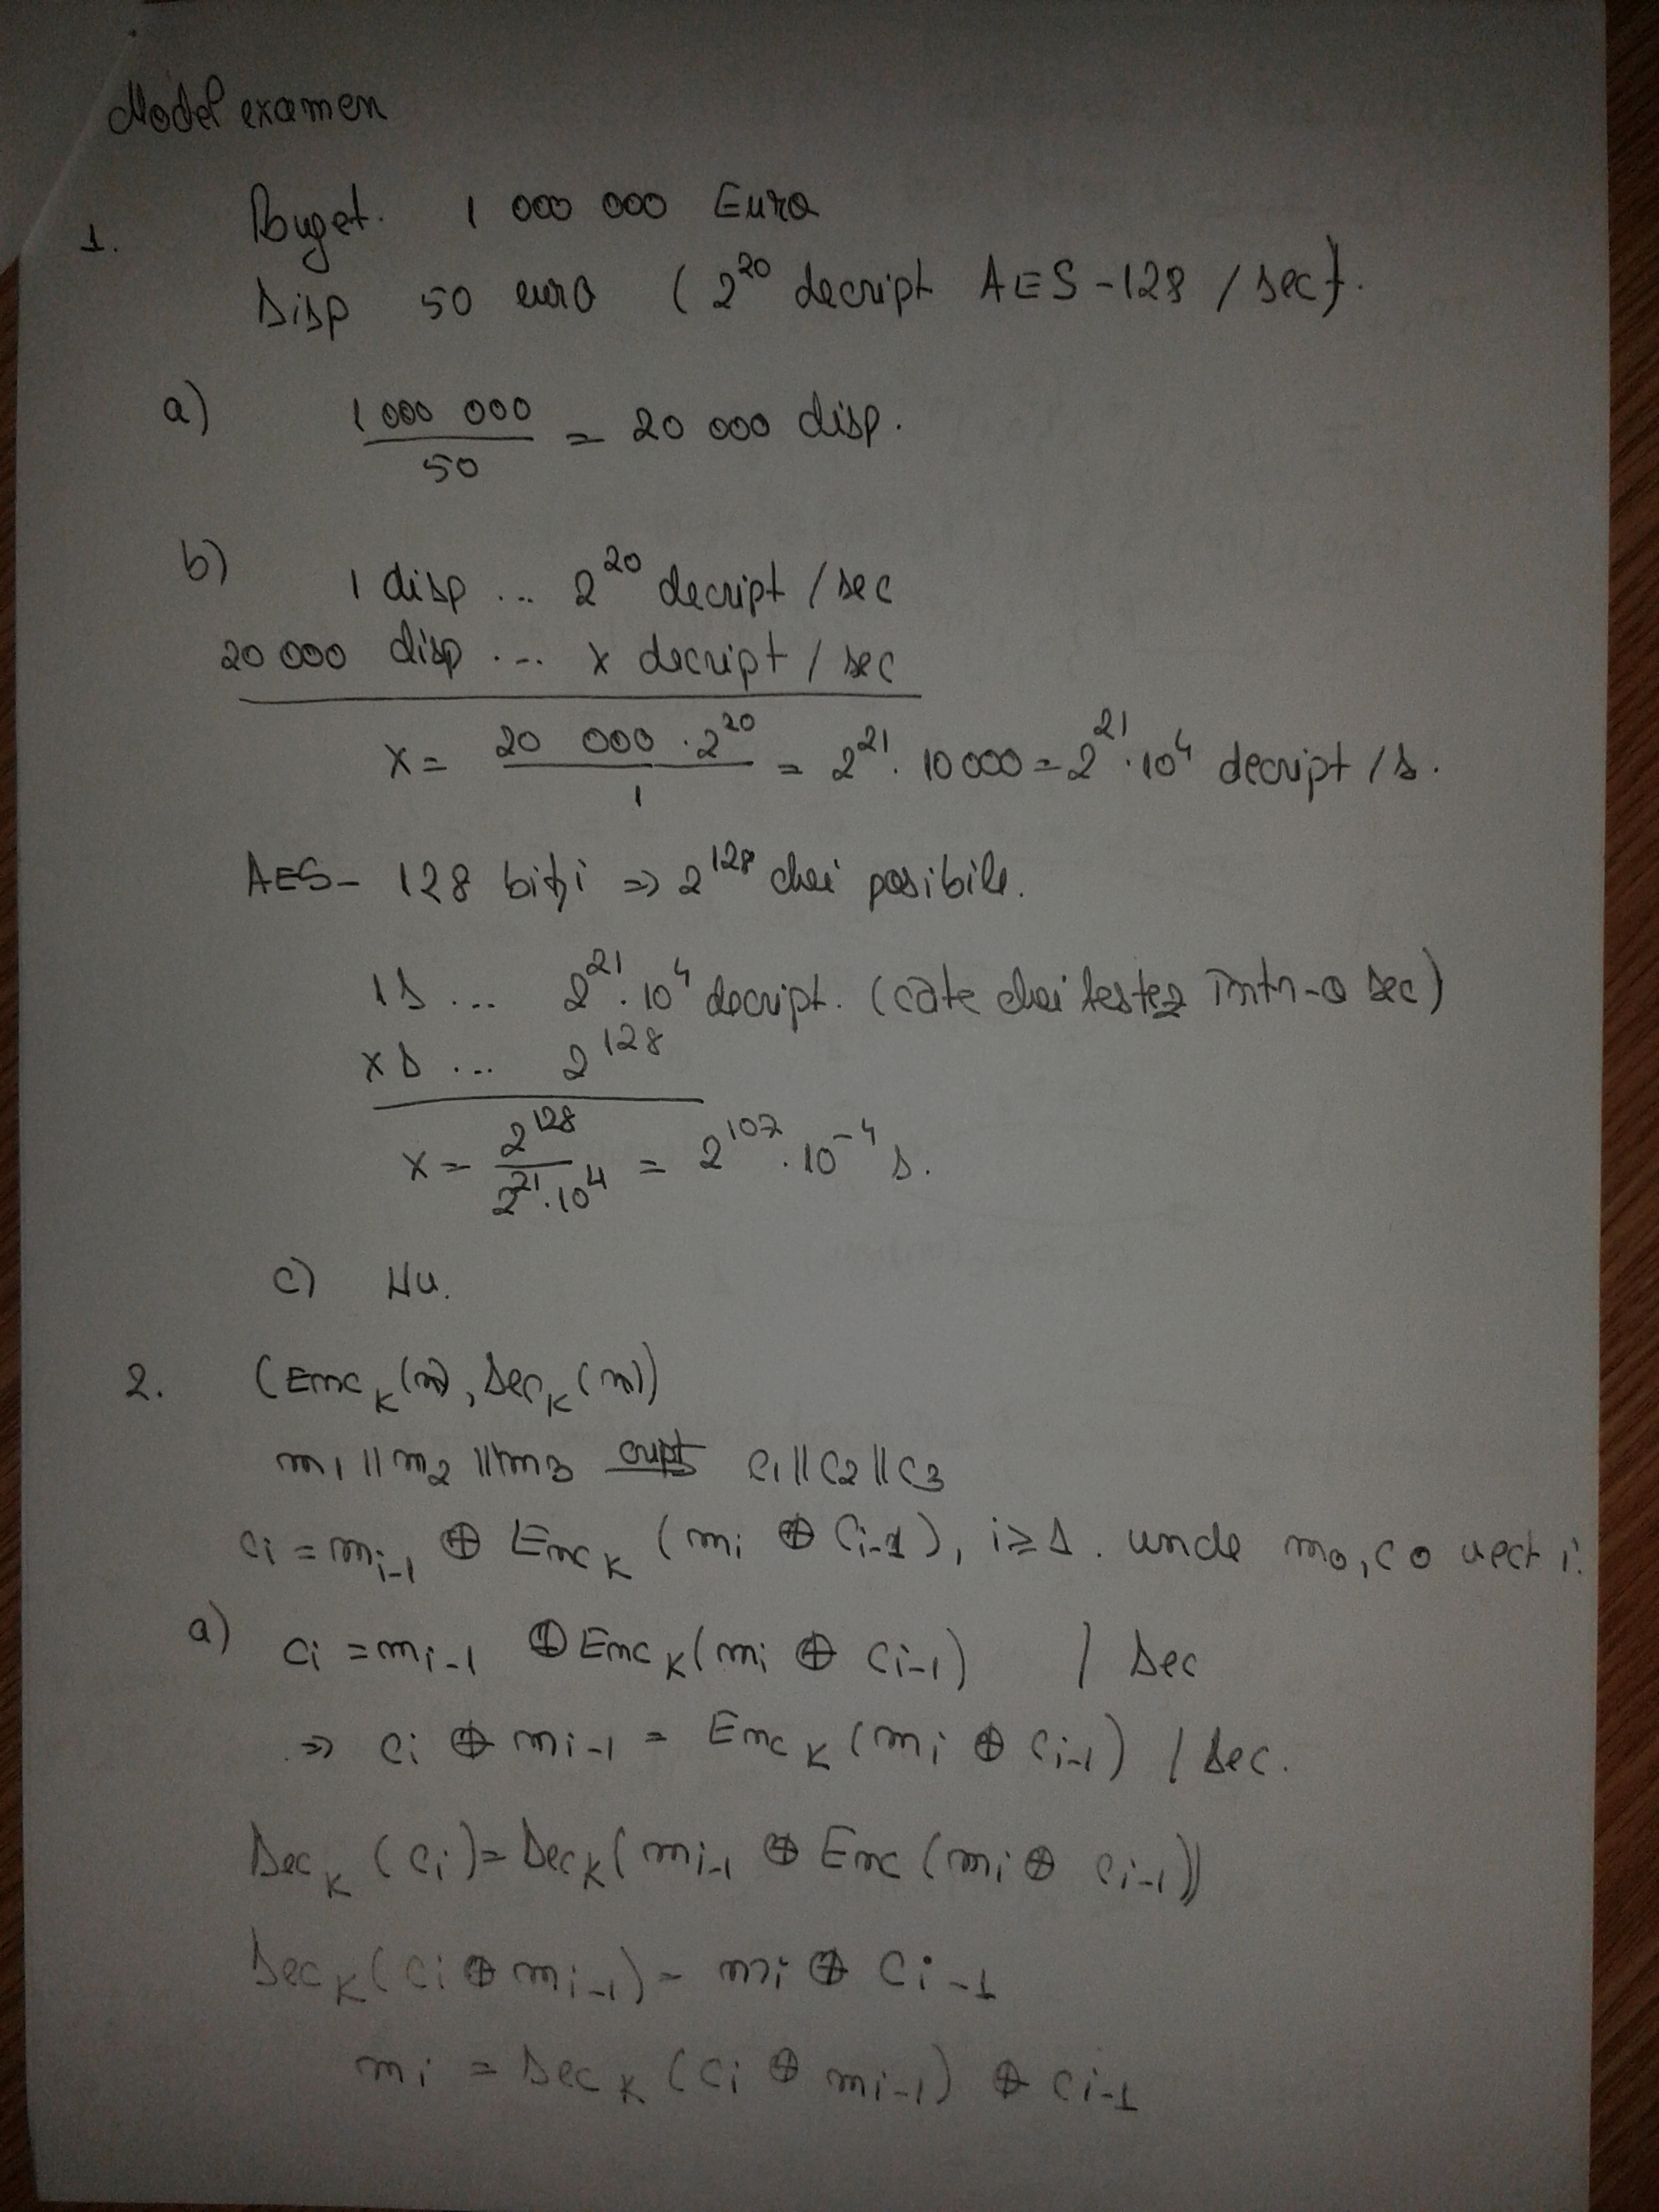 Model examen
1. Buget. 1 000 000 Euro
Disp 50 euro (2^20 decript AES-128 / sec).
a) 1 000 000 / 50 = 20 000 disp.
b) 1 disp ... 2^20 decript / sec
20 000 disp ... x decript / sec
x = 20 000 · 2^20 / 1 = 2^21 · 10 000 = 2^21 · 10^4 decript / s.
AES - 128 biți => 2^128 chei posibile.
1 s ... 2^21 · 10^4 decript. (câte chei testez într-o sec)
x s ... 2^128
x = 2^128 / 2^21 · 10^4 = 2^107 · 10^-4 s.
c) Nu.
2. (Enc_K(m), Dec_K(m))
m1 || m2 || m3 cript c1 || c2 || c3
ci = m_i-1 ⊕ Enc_K (mi ⊕ c_i-1), i ≥ 1. unde m0, c0 vect i.
a) ci = m_i-1 ⊕ Enc_K (mi ⊕ c_i-1) / Dec
=> ci ⊕ m_i-1 = Enc_K (mi ⊕ c_i-1) / Dec.
Dec_K (ci) = Dec_K (m_i-1 ⊕ Enc (mi ⊕ c_i-1))
Dec_K (ci ⊕ m_i-1) = mi ⊕ c_i-1
mi = Dec_K (ci ⊕ m_i-1) ⊕ c_i-1